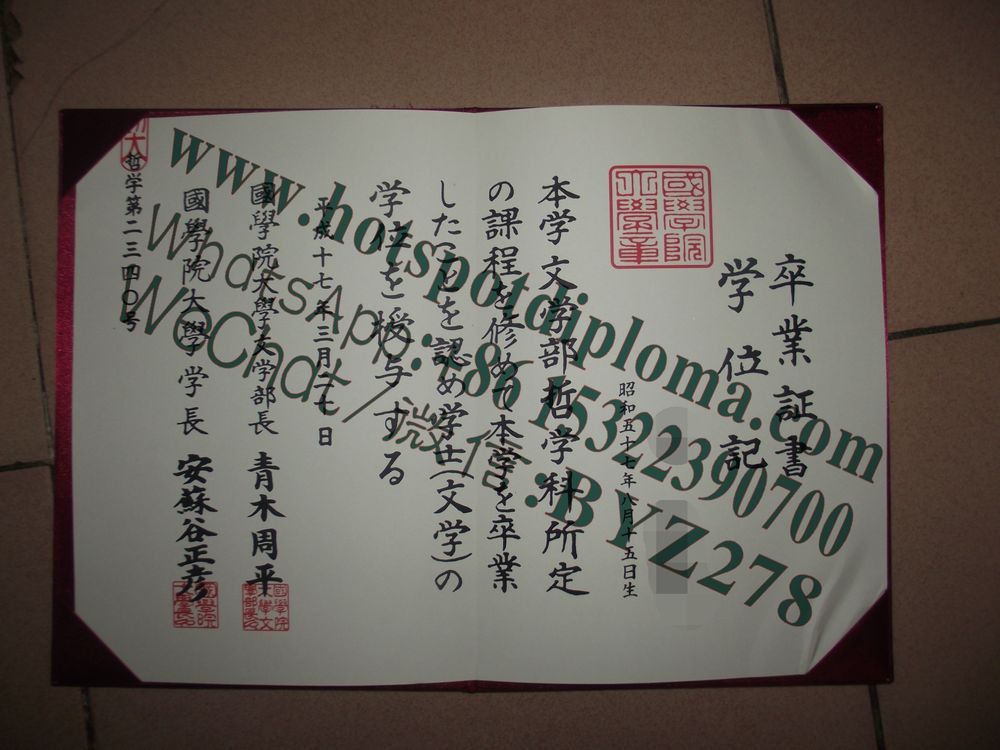 卒業証書
学位記
國學院
大學章
昭和五十七年八月十五日生
本学文学部哲学科所定
の課程を修めて本学を卒業
したことを認め学士(文学)の
学位を授与する
平成十七年三月二十日
國學院大學文学部長 青木周平
國學院大學学長 安蘇谷正彦
哲学第二三四〇号
www.hotspotdiploma.com
WhatsApp:+86 15322390700
WeChat/微信:BYZ278